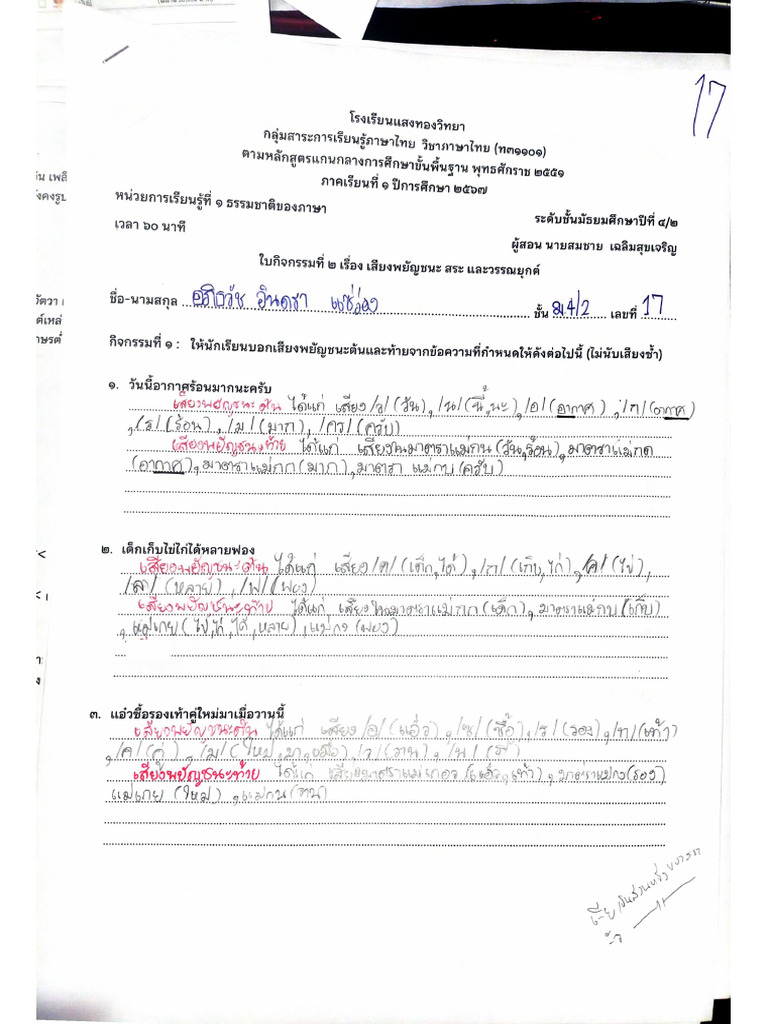 17
โรงเรียนแสงทองวิทยา
กลุ่มสาระการเรียนรู้ภาษาไทย วิชาภาษาไทย (ท๓๑๑๐๑)
ตามหลักสูตรแกนกลางการศึกษาขั้นพื้นฐาน พุทธศักราช ๒๕๕๑
ภาคเรียนที่ ๑ ปีการศึกษา ๒๕๖๗
หน่วยการเรียนรู้ที่ ๑ ธรรมชาติของภาษา
ระดับชั้นมัธยมศึกษาปีที่ ๔/๒
เวลา ๖๐ นาที
ผู้สอน นายสมชาย เฉลิมสุขเจริญ
ใบกิจกรรมที่ ๒ เรื่อง เสียงพยัญชนะ สระ และวรรณยุกต์
ชื่อ-นามสกุล อินดรา แซ่ย่อง ชั้น ม4/2 เลขที่ 17
กิจกรรมที่ ๑ : ให้นักเรียนบอกเสียงพยัญชนะต้นและท้ายจากข้อความที่กำหนดให้ดังต่อไปนี้ (ไม่นับเสียงซ้ำ)
๑. วันนี้อากาศร้อนมากนะครับ
เสียงพยัญชนะต้น ได้แก่ เสียง /ว/ (วัน), /น/ (นี้,นะ), /อ/ (อากาศ), /ก/ (อากาศ)
, /ร/ (ร้อน), /ม/ (มาก), /คร/ (ครับ)
เสียงพยัญชนะท้าย ได้แก่ เสียงมาตราแม่กน (วัน,ร้อน), มาตราแม่กด
(อากาศ), มาตราแม่กก (มาก), มาตรา แม่กบ (ครับ)
๒. เด็กเก็บไข่ไก่ได้หลายฟอง
เสียงพยัญชนะต้น ได้แก่ เสียง /ด/ (เด็ก,ได้), /ก/ (เก็บ,ไก่), /ค/ (ไข่),
/ล/ (หลาย), /ฟ/ (ฟอง)
เสียงพยัญชนะท้าย ได้แก่ เสียงมาตราแม่กก (เด็ก), มาตราแม่กบ (เก็บ)
, แม่เกย (ไข่,ไก่,ได้,หลาย), แม่กง (ฟอง)
๓. แอ๋วซื้อรองเท้าคู่ใหม่มาเมื่อวานนี้
เสียงพยัญชนะต้น ได้แก่ เสียง /อ/ (แอ๋ว), /ซ/ (ซื้อ), /ร/ (รอง), /ท/ (เท้า)
, /ค/ (คู่), /ม/ (ใหม่,มา,เมื่อ), /ว/ (วาน), /น/ (นี้)
เสียงพยัญชนะท้าย ได้แก่ เสียงมาตราแม่เกอว (แอ๋ว,เท้า), มาตราแม่กง (รอง)
แม่เกย (ใหม่), แม่กน (วาน)